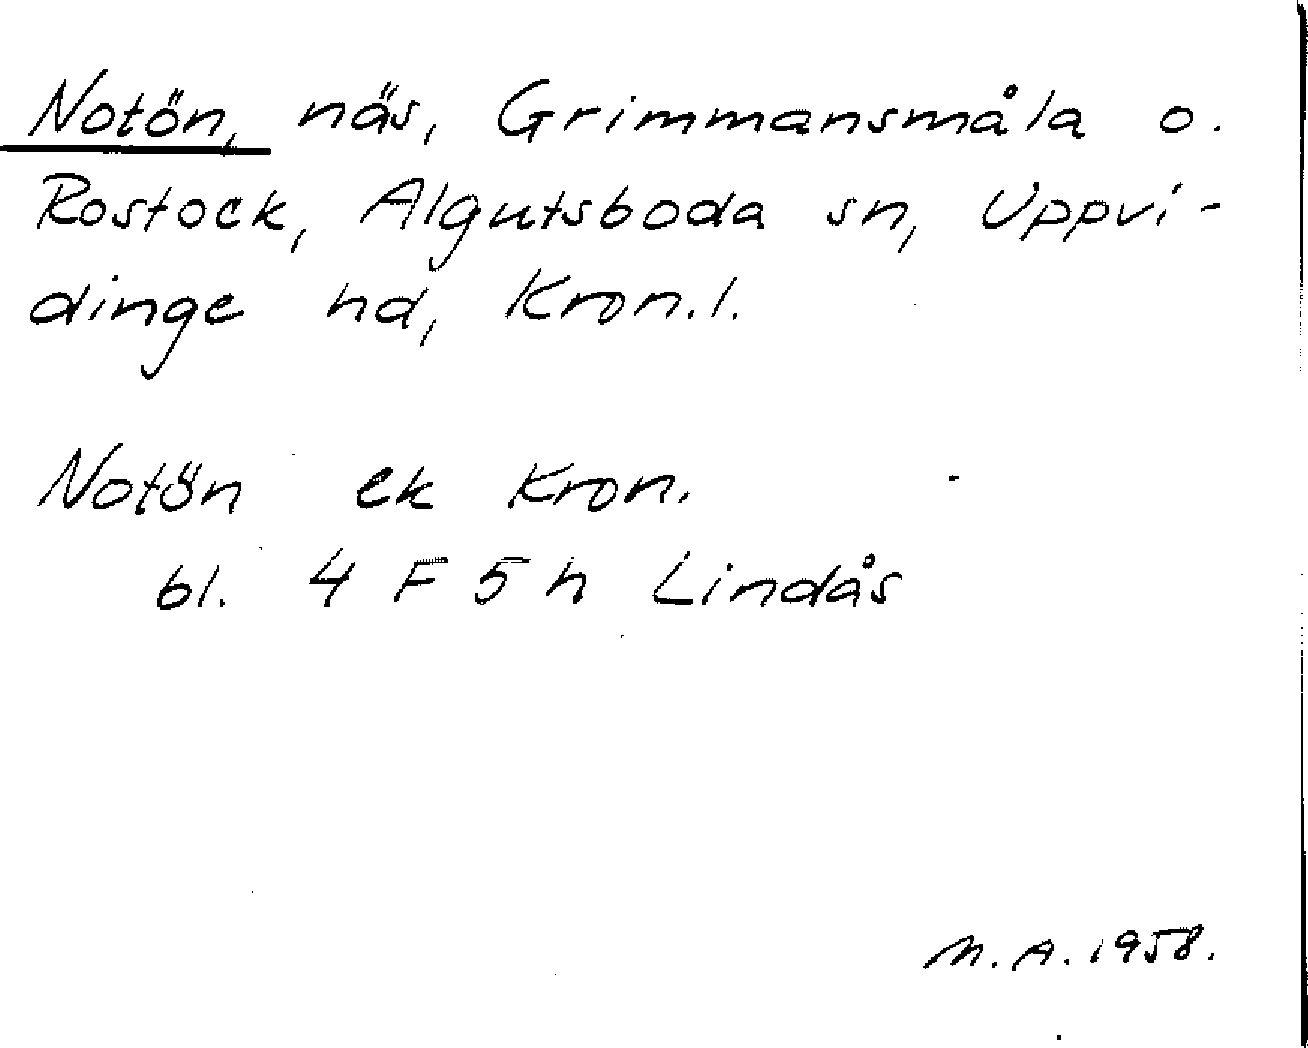 Notön, näs, Grimmansmåla o.
Rostock, Algutsboda sn, Uppvi-
dinge hd, Kron.l.
Notön ek Kron.
bl. 4 F 5 h Lindås
M.A. 1958.